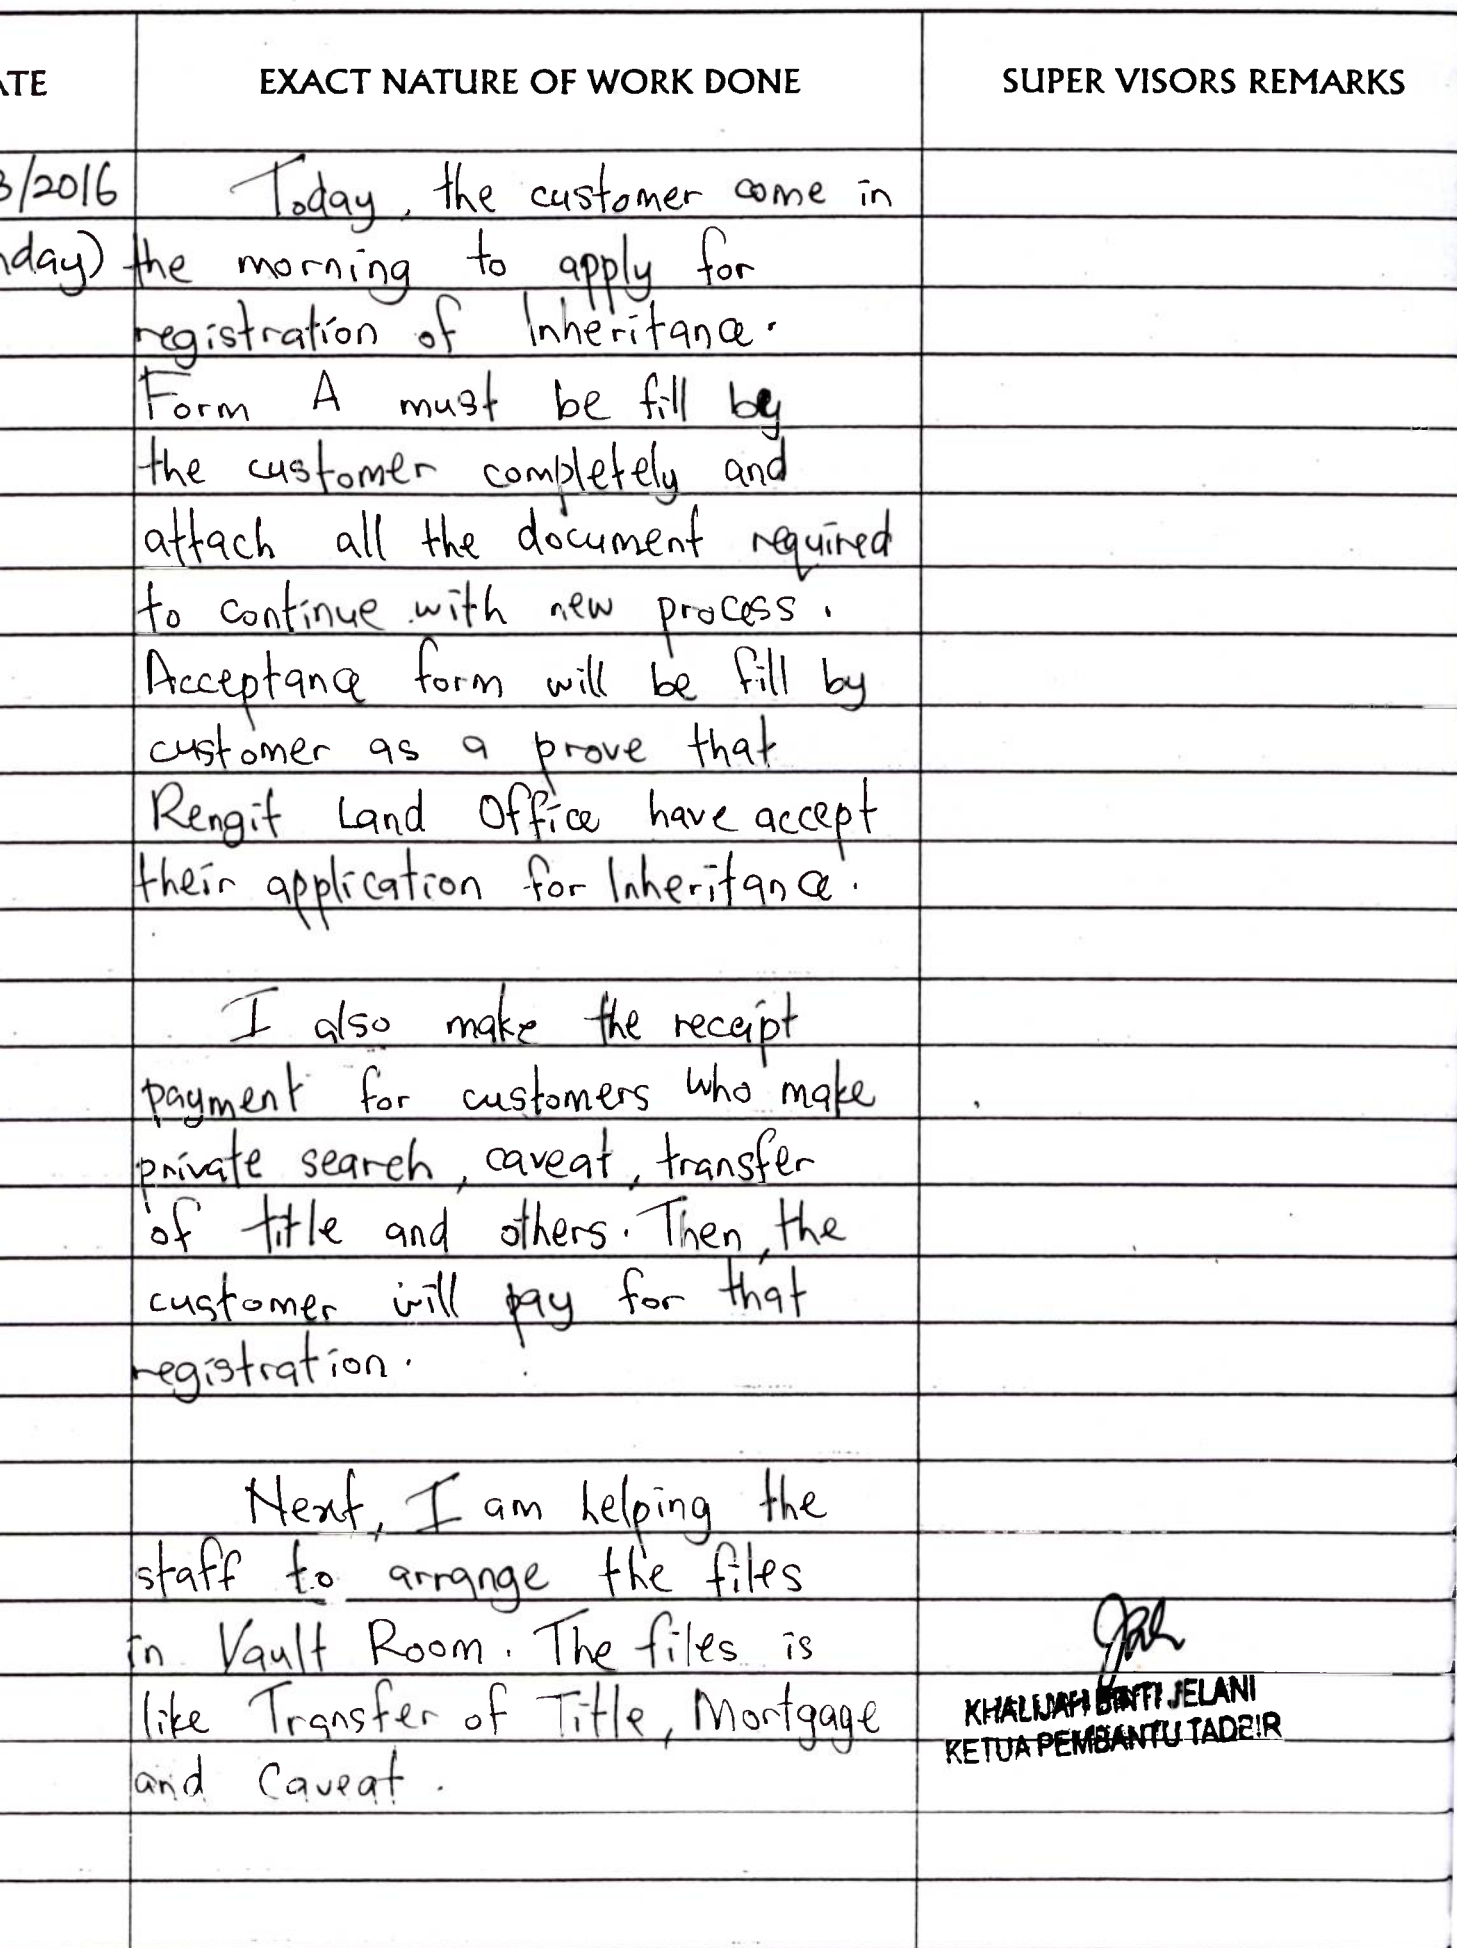 ATE EXACT NATURE OF WORK DONE SUPER VISORS REMARKS
3/2016 Today, the customer come in
nday) the morning to apply for
registration of Inheritance.
Form A must be fill by
the customer completely and
attach all the document required
to continue with new process.
Acceptance form will be fill by
customer as a prove that
Rengit Land Office have accept
their application for Inheritance.
I also make the receipt
payment for customers who make
private search, caveat, transfer
of title and others. Then, the
customer will pay for that
registration.
Next, I am helping the
staff to arrange the files
in Vault Room. The files is
like Transfer of Title, Mortgage
and Caveat.
KHALIJAH BINTI JELANI
KETUA PEMBANTU TADBIR